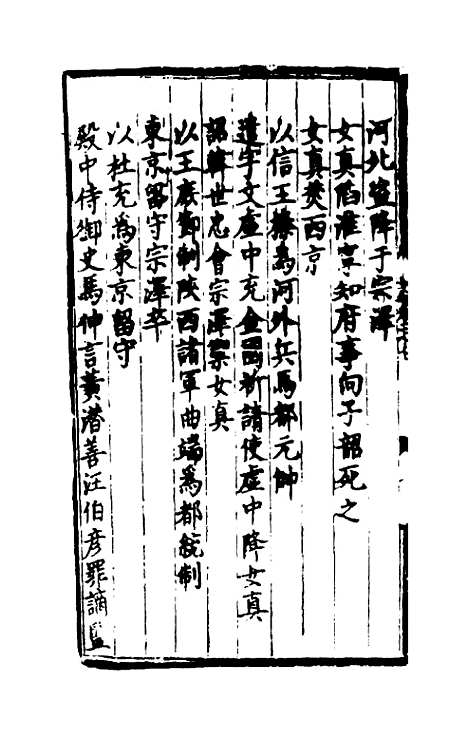 河北盜降于宗澤
女真陷淮寧知府事向子韶死之
女真焚西京
以信王榛為河外兵馬都元帥
遣宇文虛中充金國祈請使虛中降女真
詔韓世忠會宗澤禦女真
以王庶節制陝西諸軍曲端為都統制
東京留守宗澤卒
以杜充為東京留守
殿中侍御史馬伸言黃潛善汪伯彥罪謫監